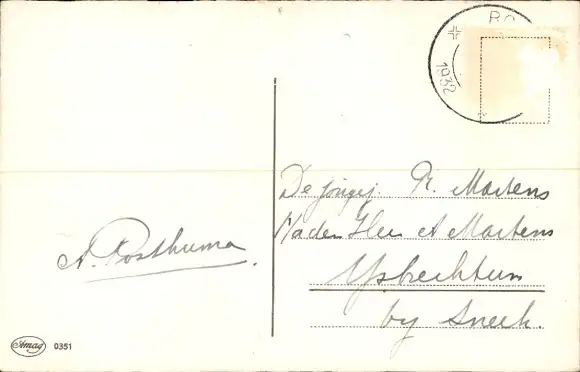 BO
1932
A. Posthuma
De Jongej. R. Martens
p/a den Heer A Martens
Ysbrechtum
by Sneek.
Amag 0351